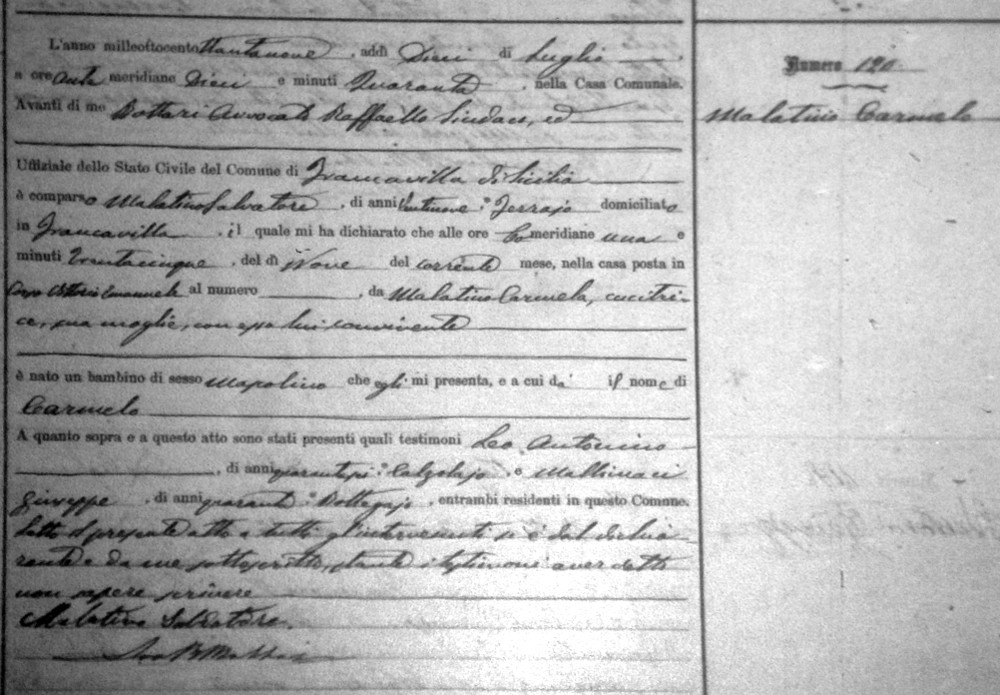 L'anno milleottocento ottantanove, addì Dieci di Luglio,
a ore anti meridiane Dieci e minuti Quaranta, nella Casa Comunale.
Avanti di me Bottari Avvocato Raffaello Sindaco, ed
Uffiziale dello Stato Civile del Comune di Francavilla di Sicilia
è comparso Malatino Salvatore, di anni ventinove, Ferrajo domiciliato
in Francavilla, il quale mi ha dichiarato che alle ore Po meridiane una e
minuti trentacinque, del dì Nove del corrente mese, nella casa posta in
Corso Vittorio Emanuele al numero, da Malatino Carmela, cucitri-
ce, sua moglie, con esso lui convivente
è nato un bambino di sesso mascolino che egli mi presenta, e a cui da il nome di
Carmelo
A quanto sopra e a questo atto sono stati presenti quali testimoni Leo Antonino
, di anni Calzolajo e
Giuseppe, di anni quaranta Bottegajo, entrambi residenti in questo Comune.
Letto il presente atto a tutti gl'intervenuti si è dal dichia-
rante e da me sottoscritto, stante i testimoni aver detto
non sapere scrivere
Malatino Salvatore.
Numero 120
Malatino Carmelo